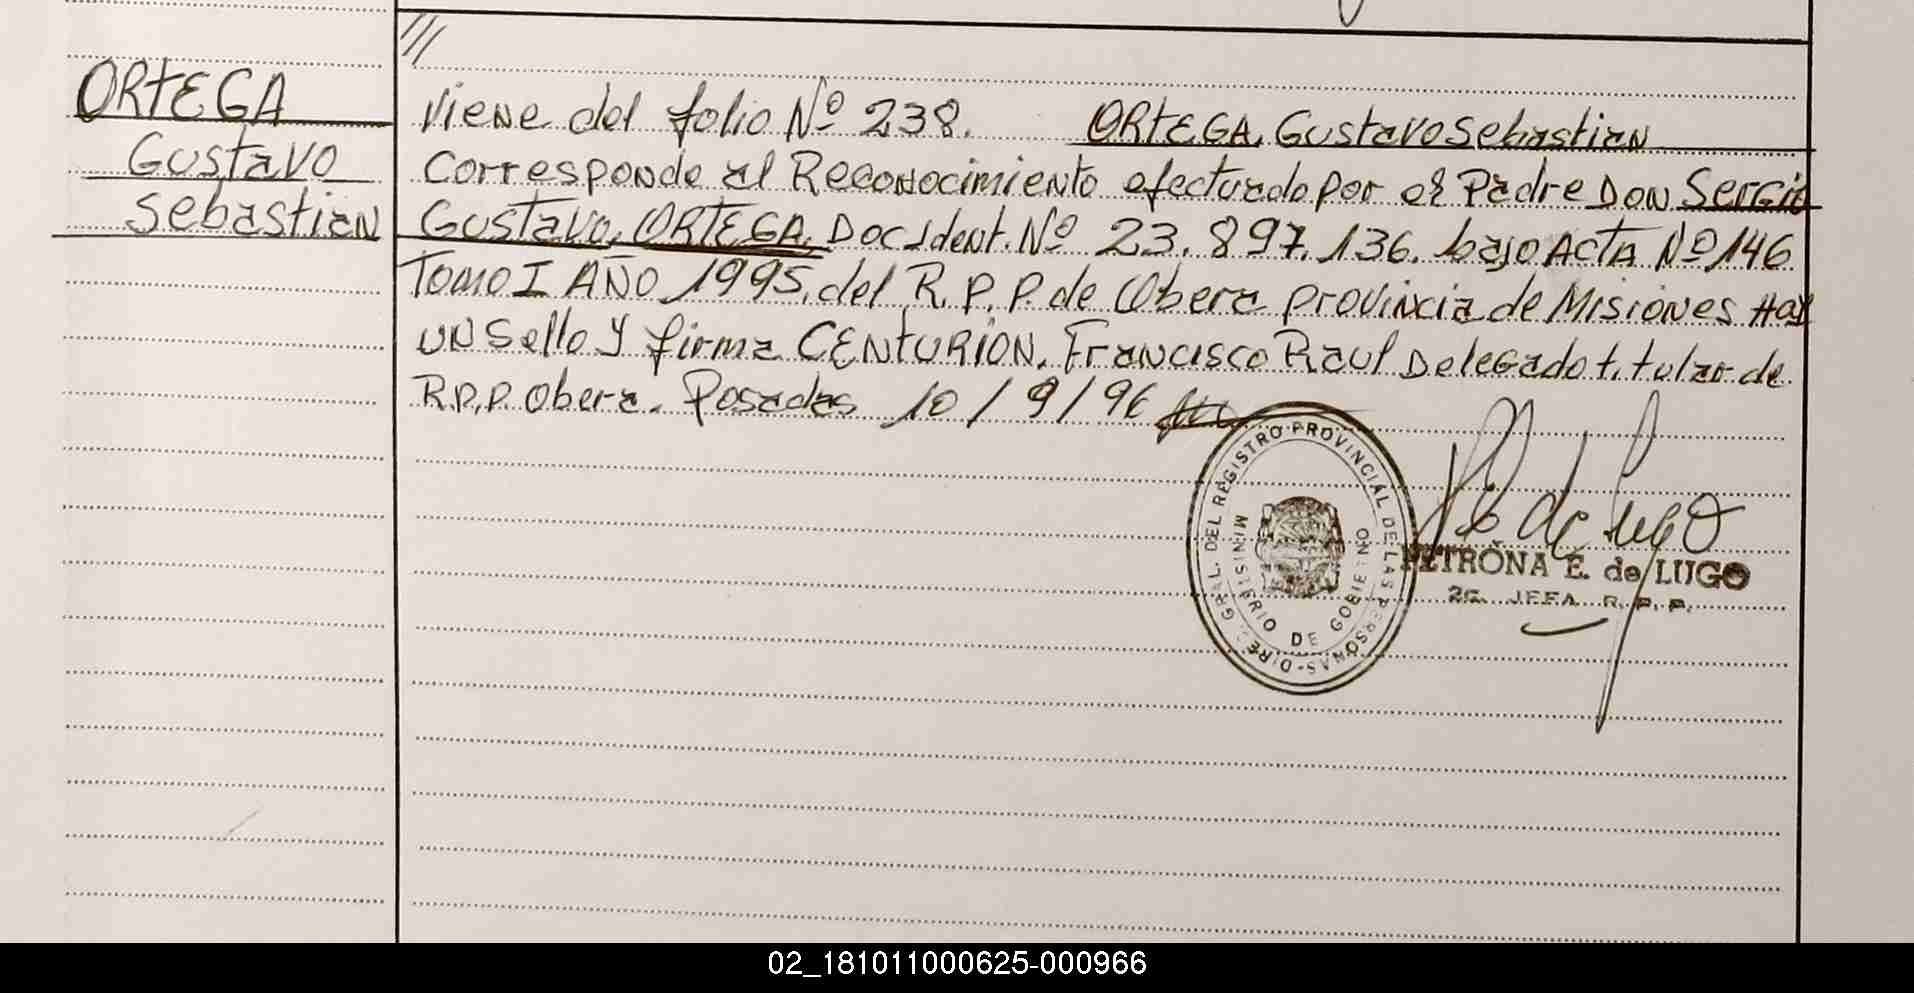 ///
ORTEGA
Gustavo
Sebastian
Viene del folio Nº 238. ORTEGA, Gustavo Sebastian
Corresponde al Reconocimiento efectuado por el Padre DON Sergio
Gustavo, ORTEGA, Doc Ident. Nº 23.897.136. bajo ACTA Nº 146
TOMO I AÑO 1995, del R.P.P. de Obera provincia de Misiones Hay
un Sello y firma CENTURION, Francisco Raul Delegado titular de
R.P.P. Obera. Posadas 10/9/96
DIREC. GRAL. DEL REGISTRO PROVINCIAL DE LAS PERSONAS
MINISTERIO DE GOBIERNO
PE de Lugo
PETRONA E. de LUGO
2a. JEFA R.P.P.
02_181011000625-000966